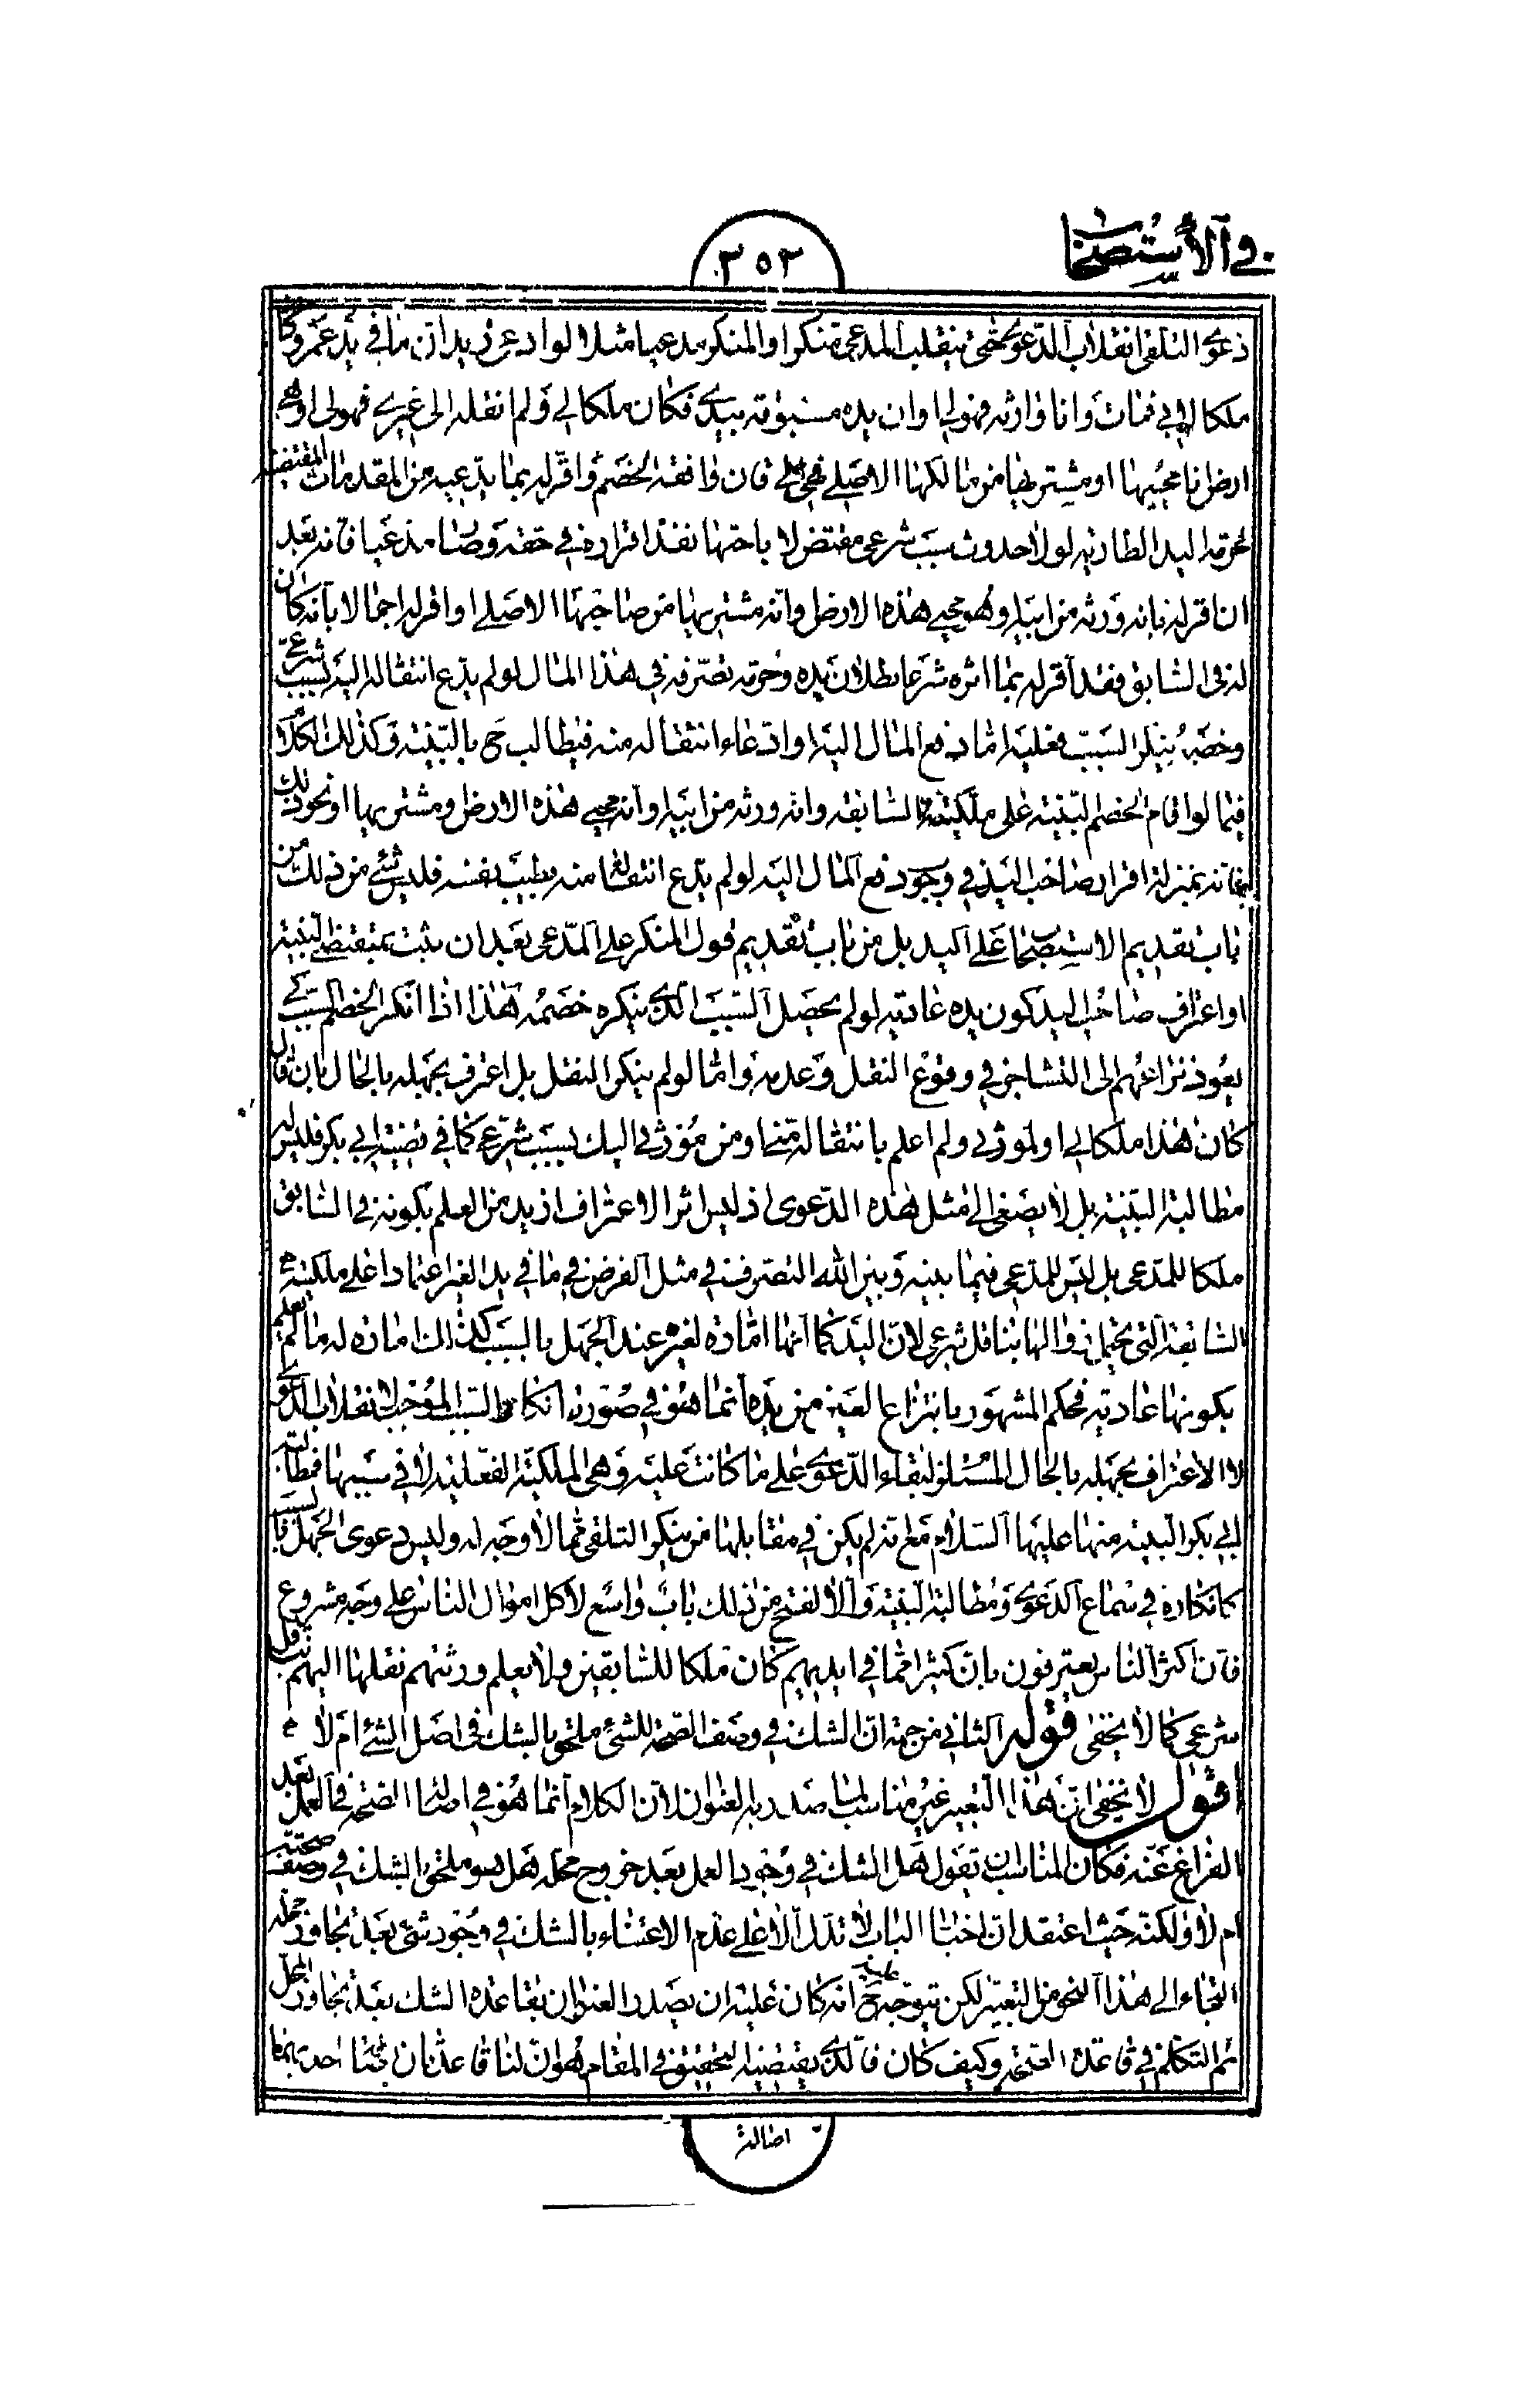 في الاستصحاب
٣٥٢
دعوى التلقي انقلاب الدعوى حتى ينقلب المدعي منكرا والمنكر مدعيا مثلا لو ادعى زيد ان ما في يد عمرو كان
ملكا لابي فمات وانا وارثه فهو لي او ان يده مسبوقة بيدي فكان ملكا لي ولم انقله الى غيري فهو لي او هي
ارض انا محييها او مشتريها من مالكها الاصلي فهي لي فان وافقه الخصم واقر له بما يدعيه من المقدمات المقتضية
لحرمة اليد الطارية لولا حدوث سبب شرعي مقتض لاباحتها نفذ اقراره في حقه وصار مدعيا فانه بعد
ان اقر له بانه ورثه من ابيه او هو محيي هذه الارض وانه مشتريها من صاحبها الاصلي او اقر له اجمالا بانه كان
له في السابق فقد اقر له بما اثره شرعا بطلان يده وحرمة تصرفه في هذا المال لو لم يدع انتقاله اليه بسبب شرعي
وخصمه ينكر السبب فعليه اما دفع المال اليه او ادعاء انتقاله منه فيطالب ح بالبينة وكذلك الكلام
فيما لو اقام الخصم البينة على ملكيته السابقة وانه ورثه من ابيه او انه محيي هذه الارض ومشتريها او نحو ذلك
فانه بمنزلة اقرار صاحب اليد في وجود دفع المال اليه لو لم يدع انتقاله منه بطيب نفسه فليس شئ من ذلك من
باب تقديم الاستصحاب على اليد بل من باب تقديم قول المنكر على المدعي بعد ان يثبت بمقتضى البينة
او اعتراف صاحب اليد كون يده عادية لو لم يحصل السبب الذي ينكره خصمه هذا اذا انكر الخصم السبب كي
يعود نزاعهم الى التشاجر في وقوع النقل وعدمه واما لو لم ينكر النقل بل اعترف بجهله بالحال بان قال
كان هذا ملكا لي او لمورثي ولم اعلم بانتقاله مني او من مورثي اليك بسبب شرعي كما في قضية ابي بكر فليس له
مطالبة البينة بل لا يصغى الى مثل هذه الدعوى اذ ليس اثر الاعتراف ازيد من العلم بكونه في السابق
ملكا للمدعي بل ليس للمدعي فيما بينه وبين الله التصرف في مثل الفرض في ما في يد الغير اعتمادا على ملكيته
السابقة التي يحتمل زوالها بناقل شرعي لان اليد كما انها امارة لغيره عند الجهل بالسبب كذلك امارة له ما لم يعلم
بكونها عادية فحكم المشهور بانتزاع العين من يده انما هو في صورة انكار السبب الموجب لانقلاب الدعوى
لا الاعتراف بجهله بالحال المستلزم لبقاء الدعوى على ما كانت عليه وهي الملكية الفعلية لا في سببها فمطالبة
ابي بكر البينة منها عليها السلام مع انه لم يكن في مقابلها من ينكر التلقي مما لا وجه له وليس دعوى الجهل بالسبب
كانكاره في سماع الدعوى ومطالبة البينة والا لفتح من ذلك باب واسع لاكل اموال الناس على وجه مشروع
فان اكثر الناس يعترفون بان كثيرا مما في ايديهم كان ملكا للسابقين ولا يعلم ورثتهم نقلها اليهم بناقل
شرعي كما لا يخفى قوله الثاني من جهة ان الشك في وصف الصحة للشئ ملحق بالشك في اصل الشئ ام لا
اقول لا يخفى ان هذا التعبير غير مناسب لما صدر به العنوان لان الكلام انما هو في اصالة الصحة في العمل بعد
الفراغ عنه فكان المناسب ان يقول هل الشك في وجود العمل بعد خروج محله هل هو ملحق بالشك في وصف صحته
ام لا ولكنه حيث اعتقد ان اخبار الباب لا تدل الا على عدم الاعتناء بالشك في وجود شئ بعد تجاوز محله
التجاء الى هذا النحو من التعبير لكن يتوجه عليه ح انه كان عليه ان يصدر العنوان بقاعدة الشك بعد تجاوز المحل
ثم التكلم في قاعدة الصحة وكيف كان فالذي يقتضيه التحقيق في المقام هو ان لنا قاعدتان احديهما
اصالة